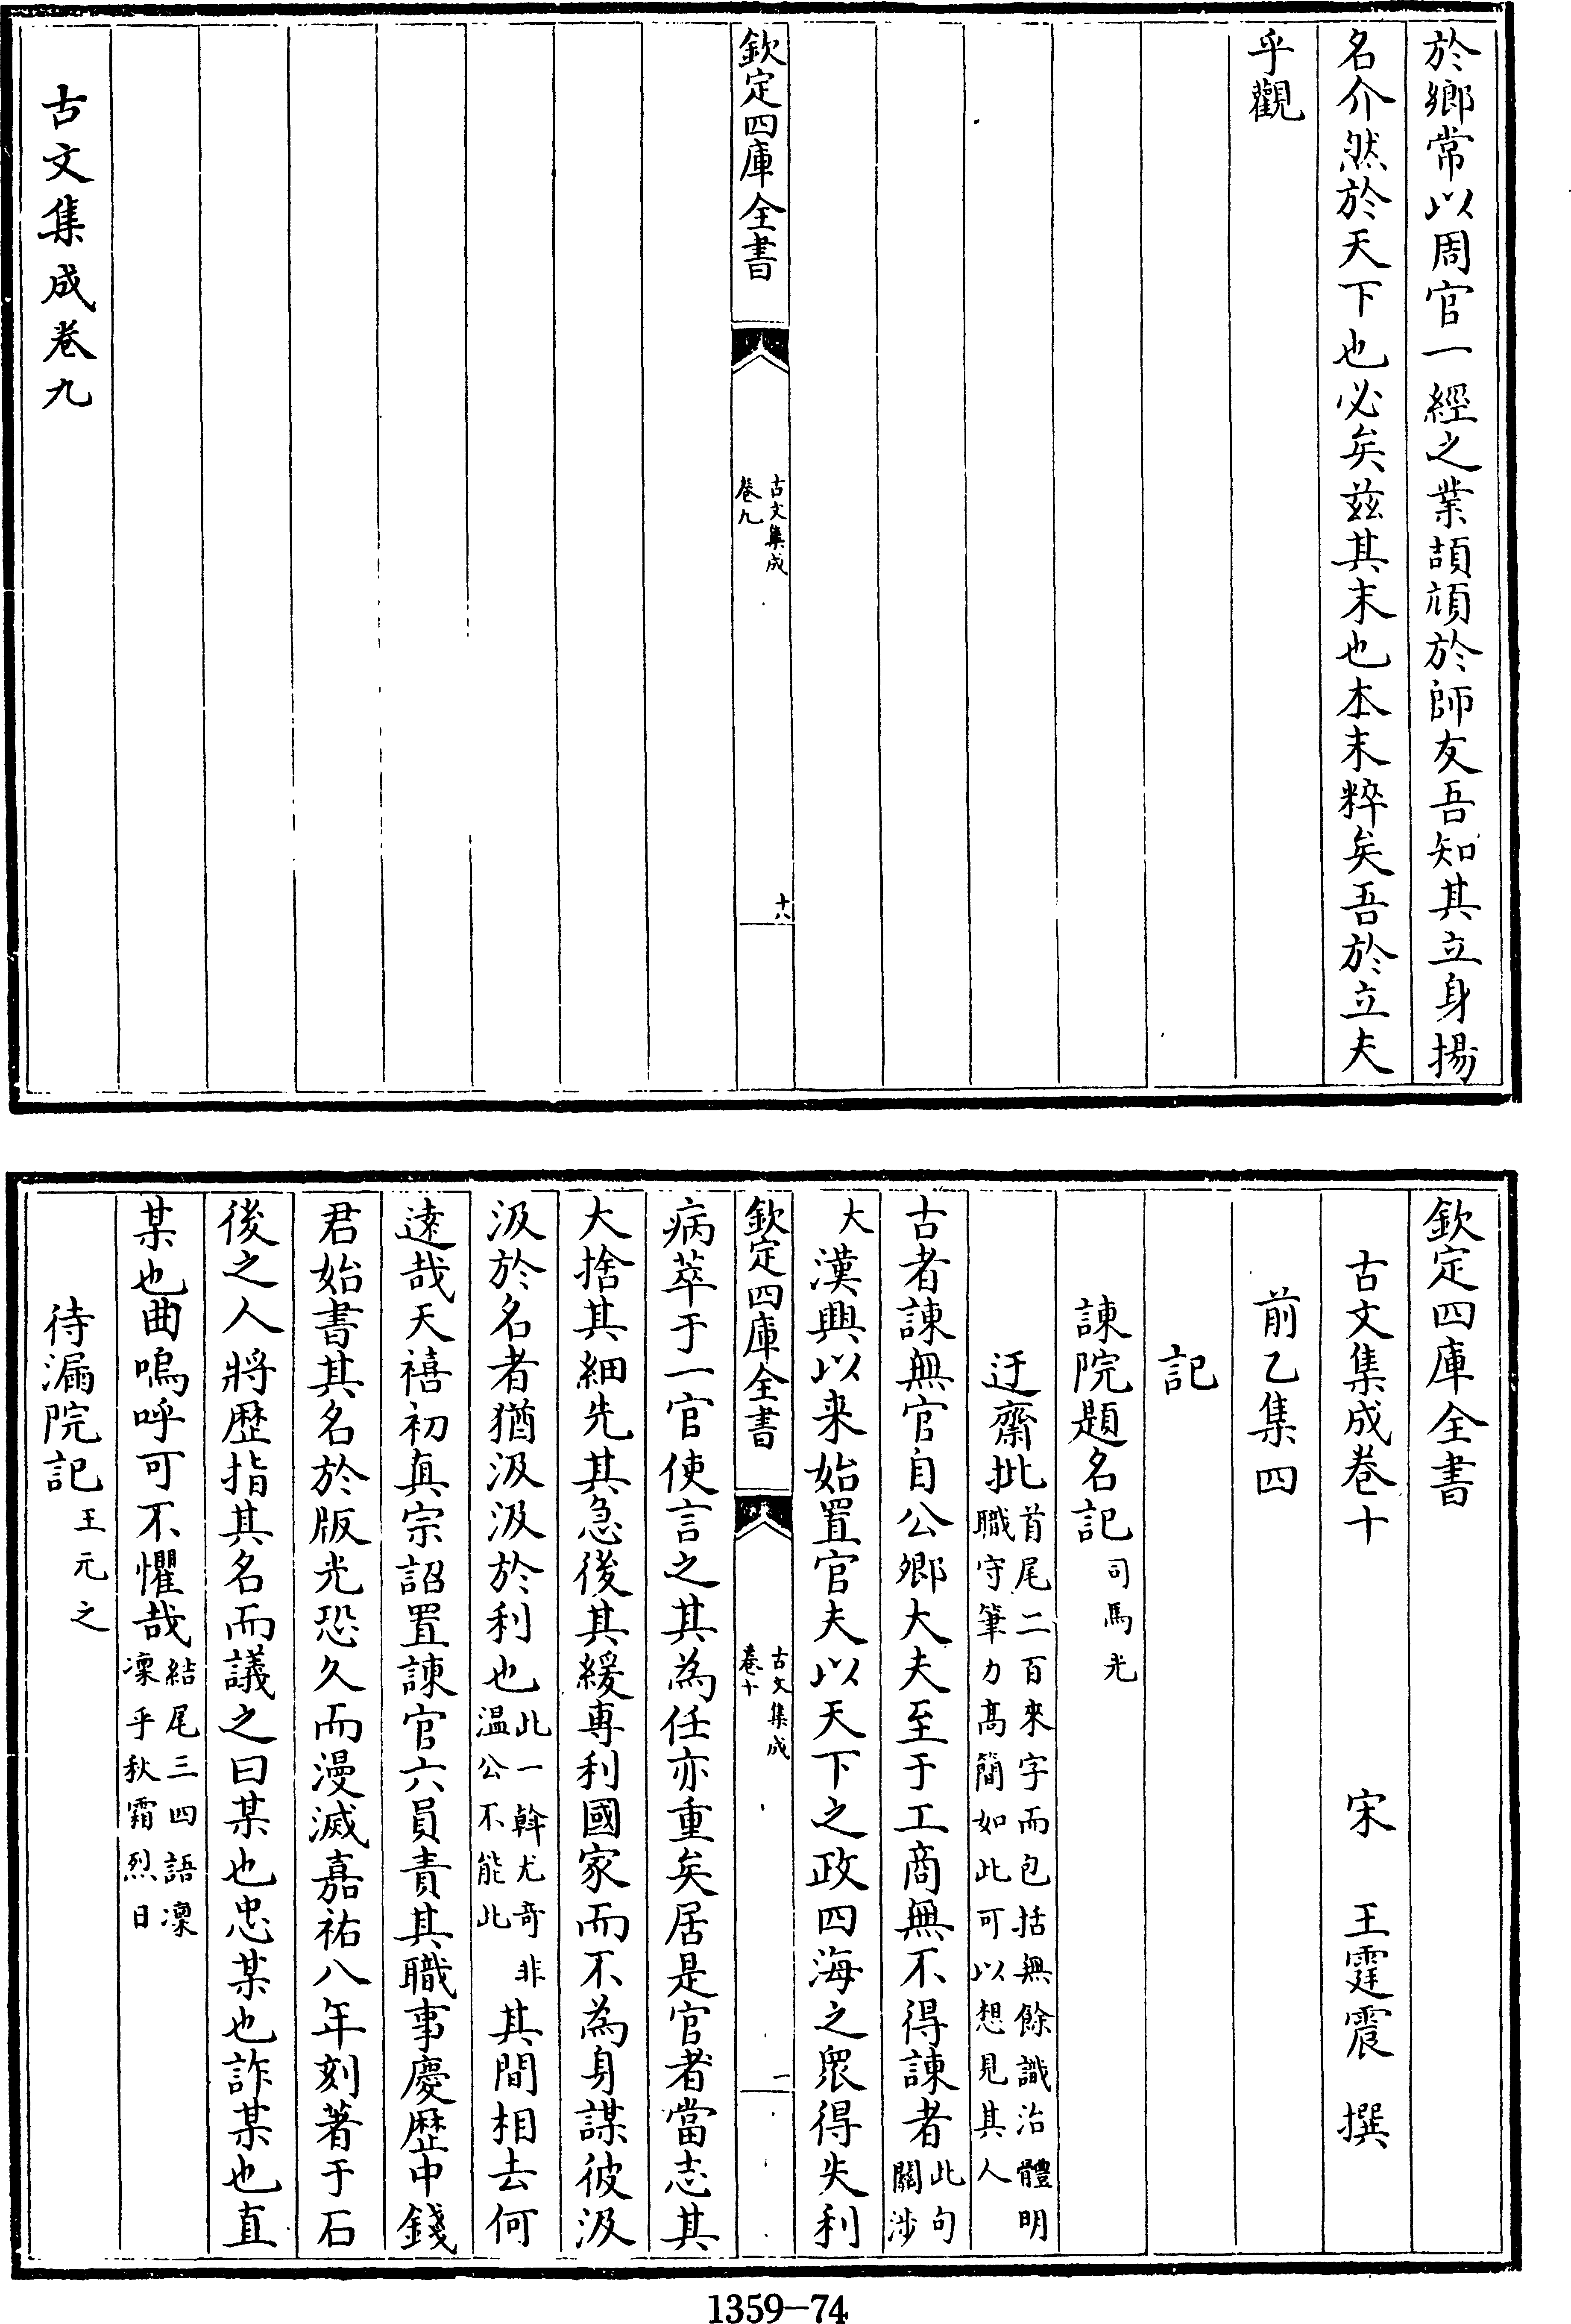 於鄉常以周官一經之業頡頏於師友吾知其立身揚
名介然於天下也必矣兹其末也本末粹矣吾於立夫
乎觀
欽定四庫全書
古文集成
卷九
十八
古文集成卷九
欽定四庫全書
古文集成卷十 宋 王霆震 撰
前乙集四
記
諫院題名記 司馬光
迂齋批 首尾二百來字而包括無餘識治體明
職守筆力髙簡如此可以想見其人
古者諫無官自公卿大夫至于工商無不得諫者 此句
關涉
大 漢興以来始置官夫以天下之政四海之衆得失利
欽定四庫全書
古文集成
卷十
一
病萃于一官使言之其為任亦重矣居是官者當志其
大捨其細先其急後其緩專利國家而不為身謀彼汲
汲於名者猶汲汲於利也 此一斡尤奇非
温公不能此 其間相去何
遠哉天禧初真宗詔置諫官六員責其職事慶歴中錢
君始書其名於版光恐久而漫滅嘉祐八年刻著于石
後之人將歴指其名而議之曰某也忠某也詐某也直
某也曲嗚呼可不懼哉 結尾三四語凜
凜乎秋霜烈日
待漏院記 王元之
1359-74